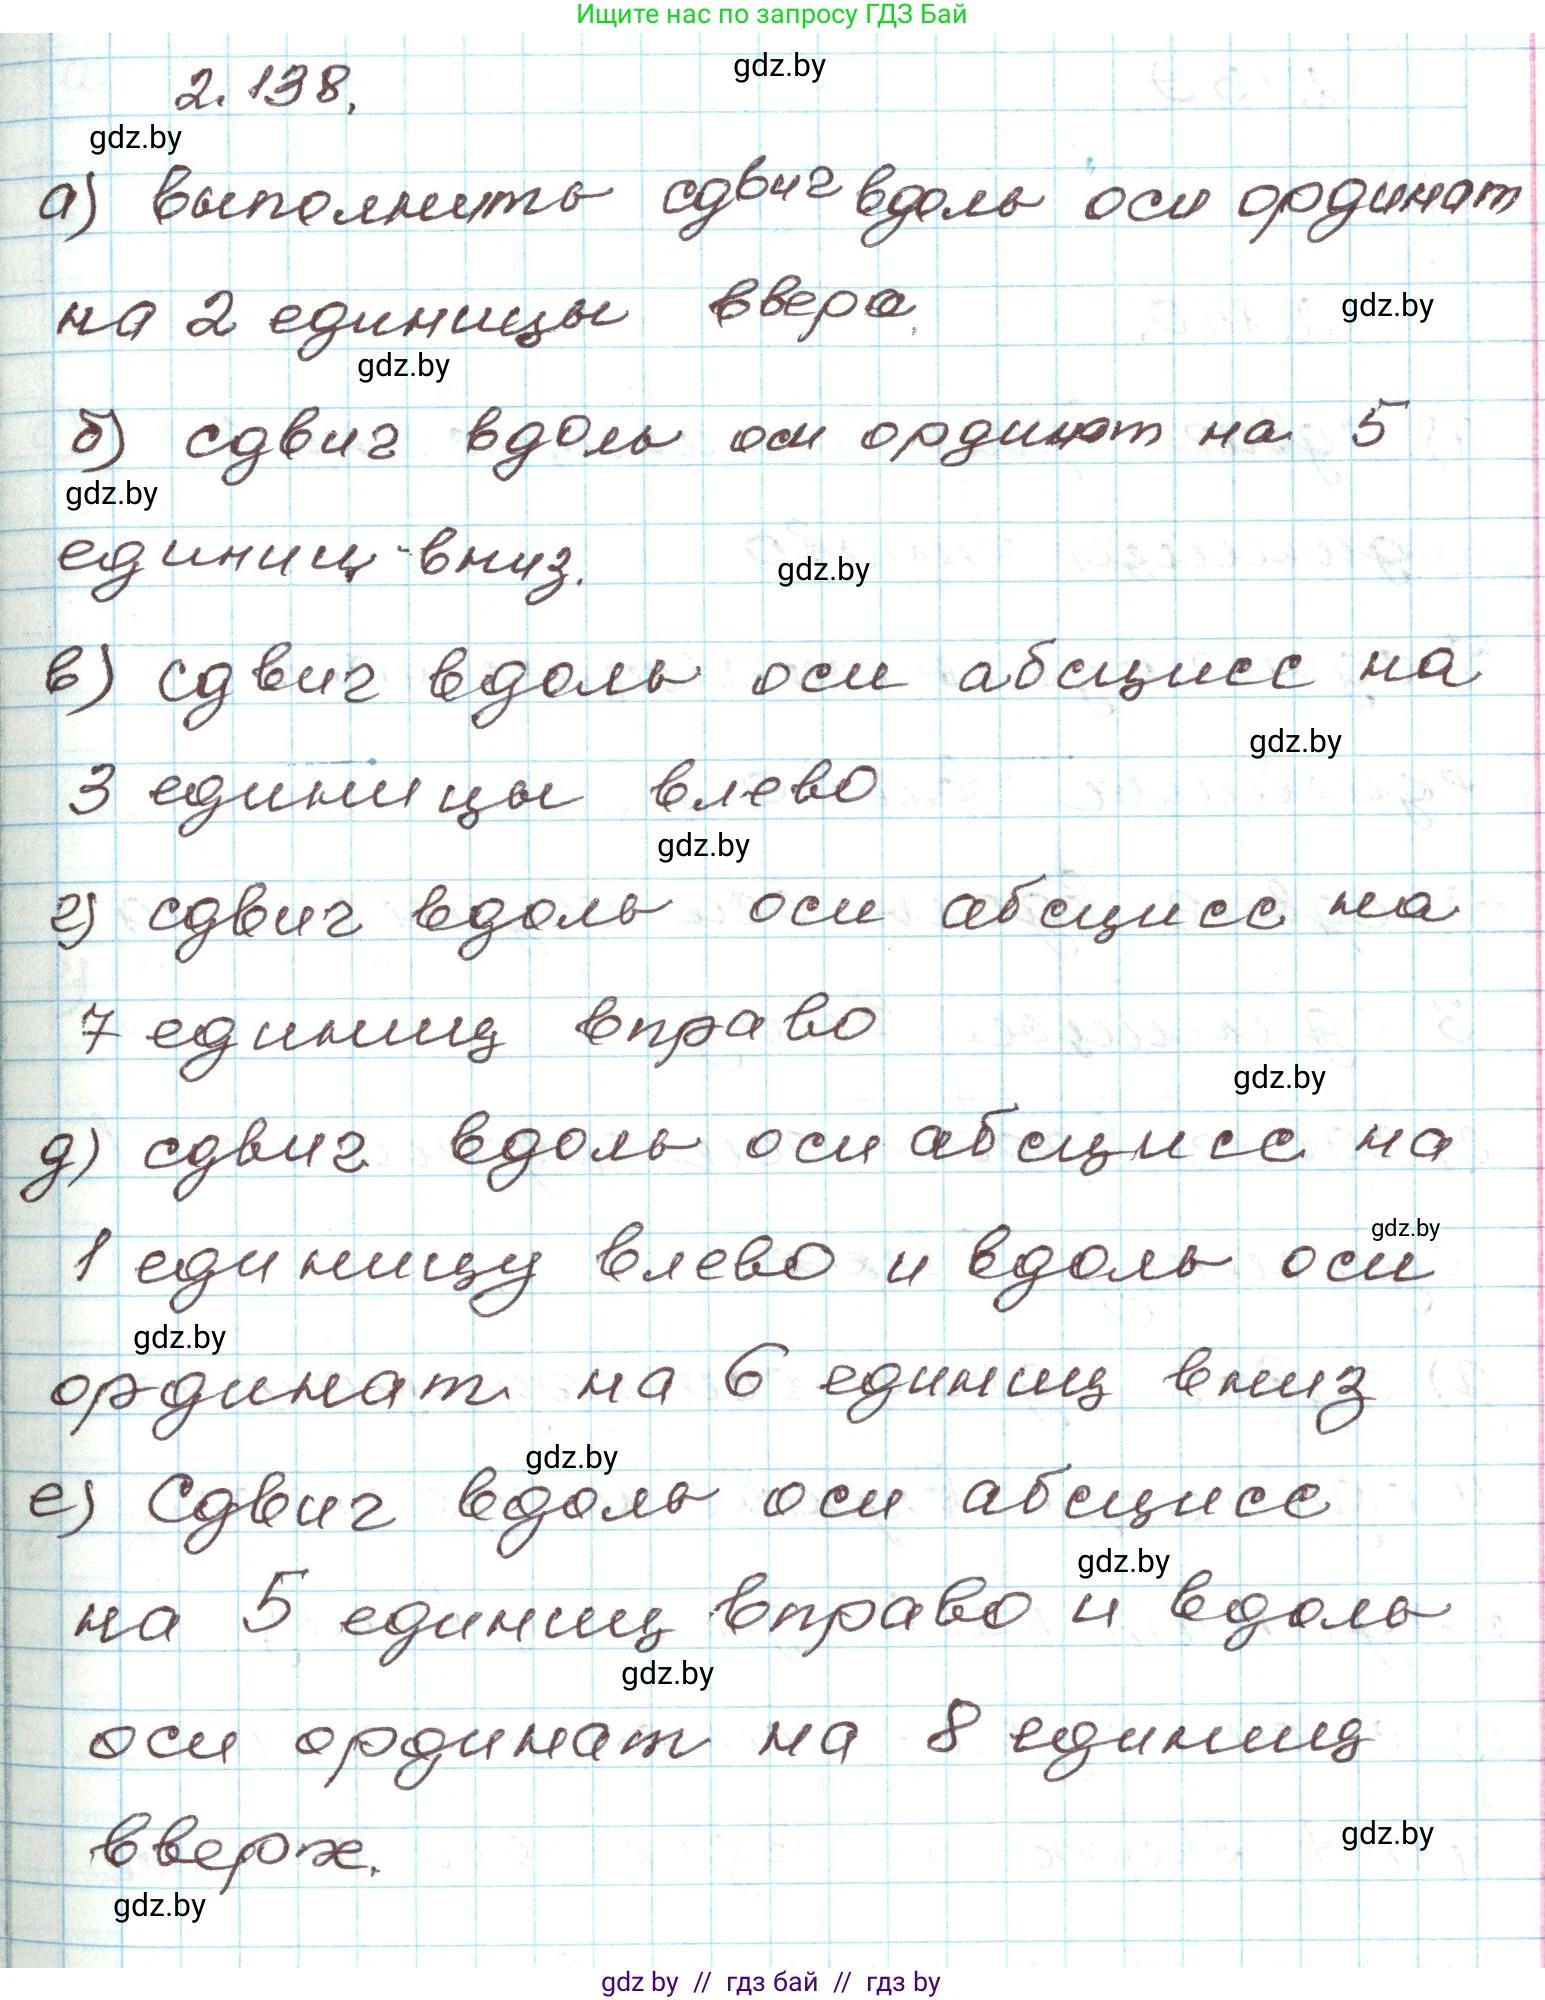 Ищите нас по запросу ГДЗ Бай
gdz.by
2.138.
gdz.by
а) выполнить сдвиг вдоль оси ординат
на 2 единицы вверх
gdz.by
gdz.by
б) сдвиг вдоль оси ординат на 5
gdz.by
единиц вниз.
gdz.by
в) сдвиг вдоль оси абсцисс на
gdz.by
3 единицы влево
gdz.by
г) сдвиг вдоль оси абсцисс на
7 единиц вправо
gdz.by
д) сдвиг вдоль оси абсцисс на
gdz.by
1 единицу влево и вдоль оси
gdz.by
ординат на 6 единиц вниз
gdz.by
е) Сдвиг вдоль оси абсцисс
gdz.by
на 5 единиц вправо и вдоль
gdz.by
оси ординат на 8 единиц
вверх.
gdz.by
gdz.by
gdz by // гдз бай // гдз by